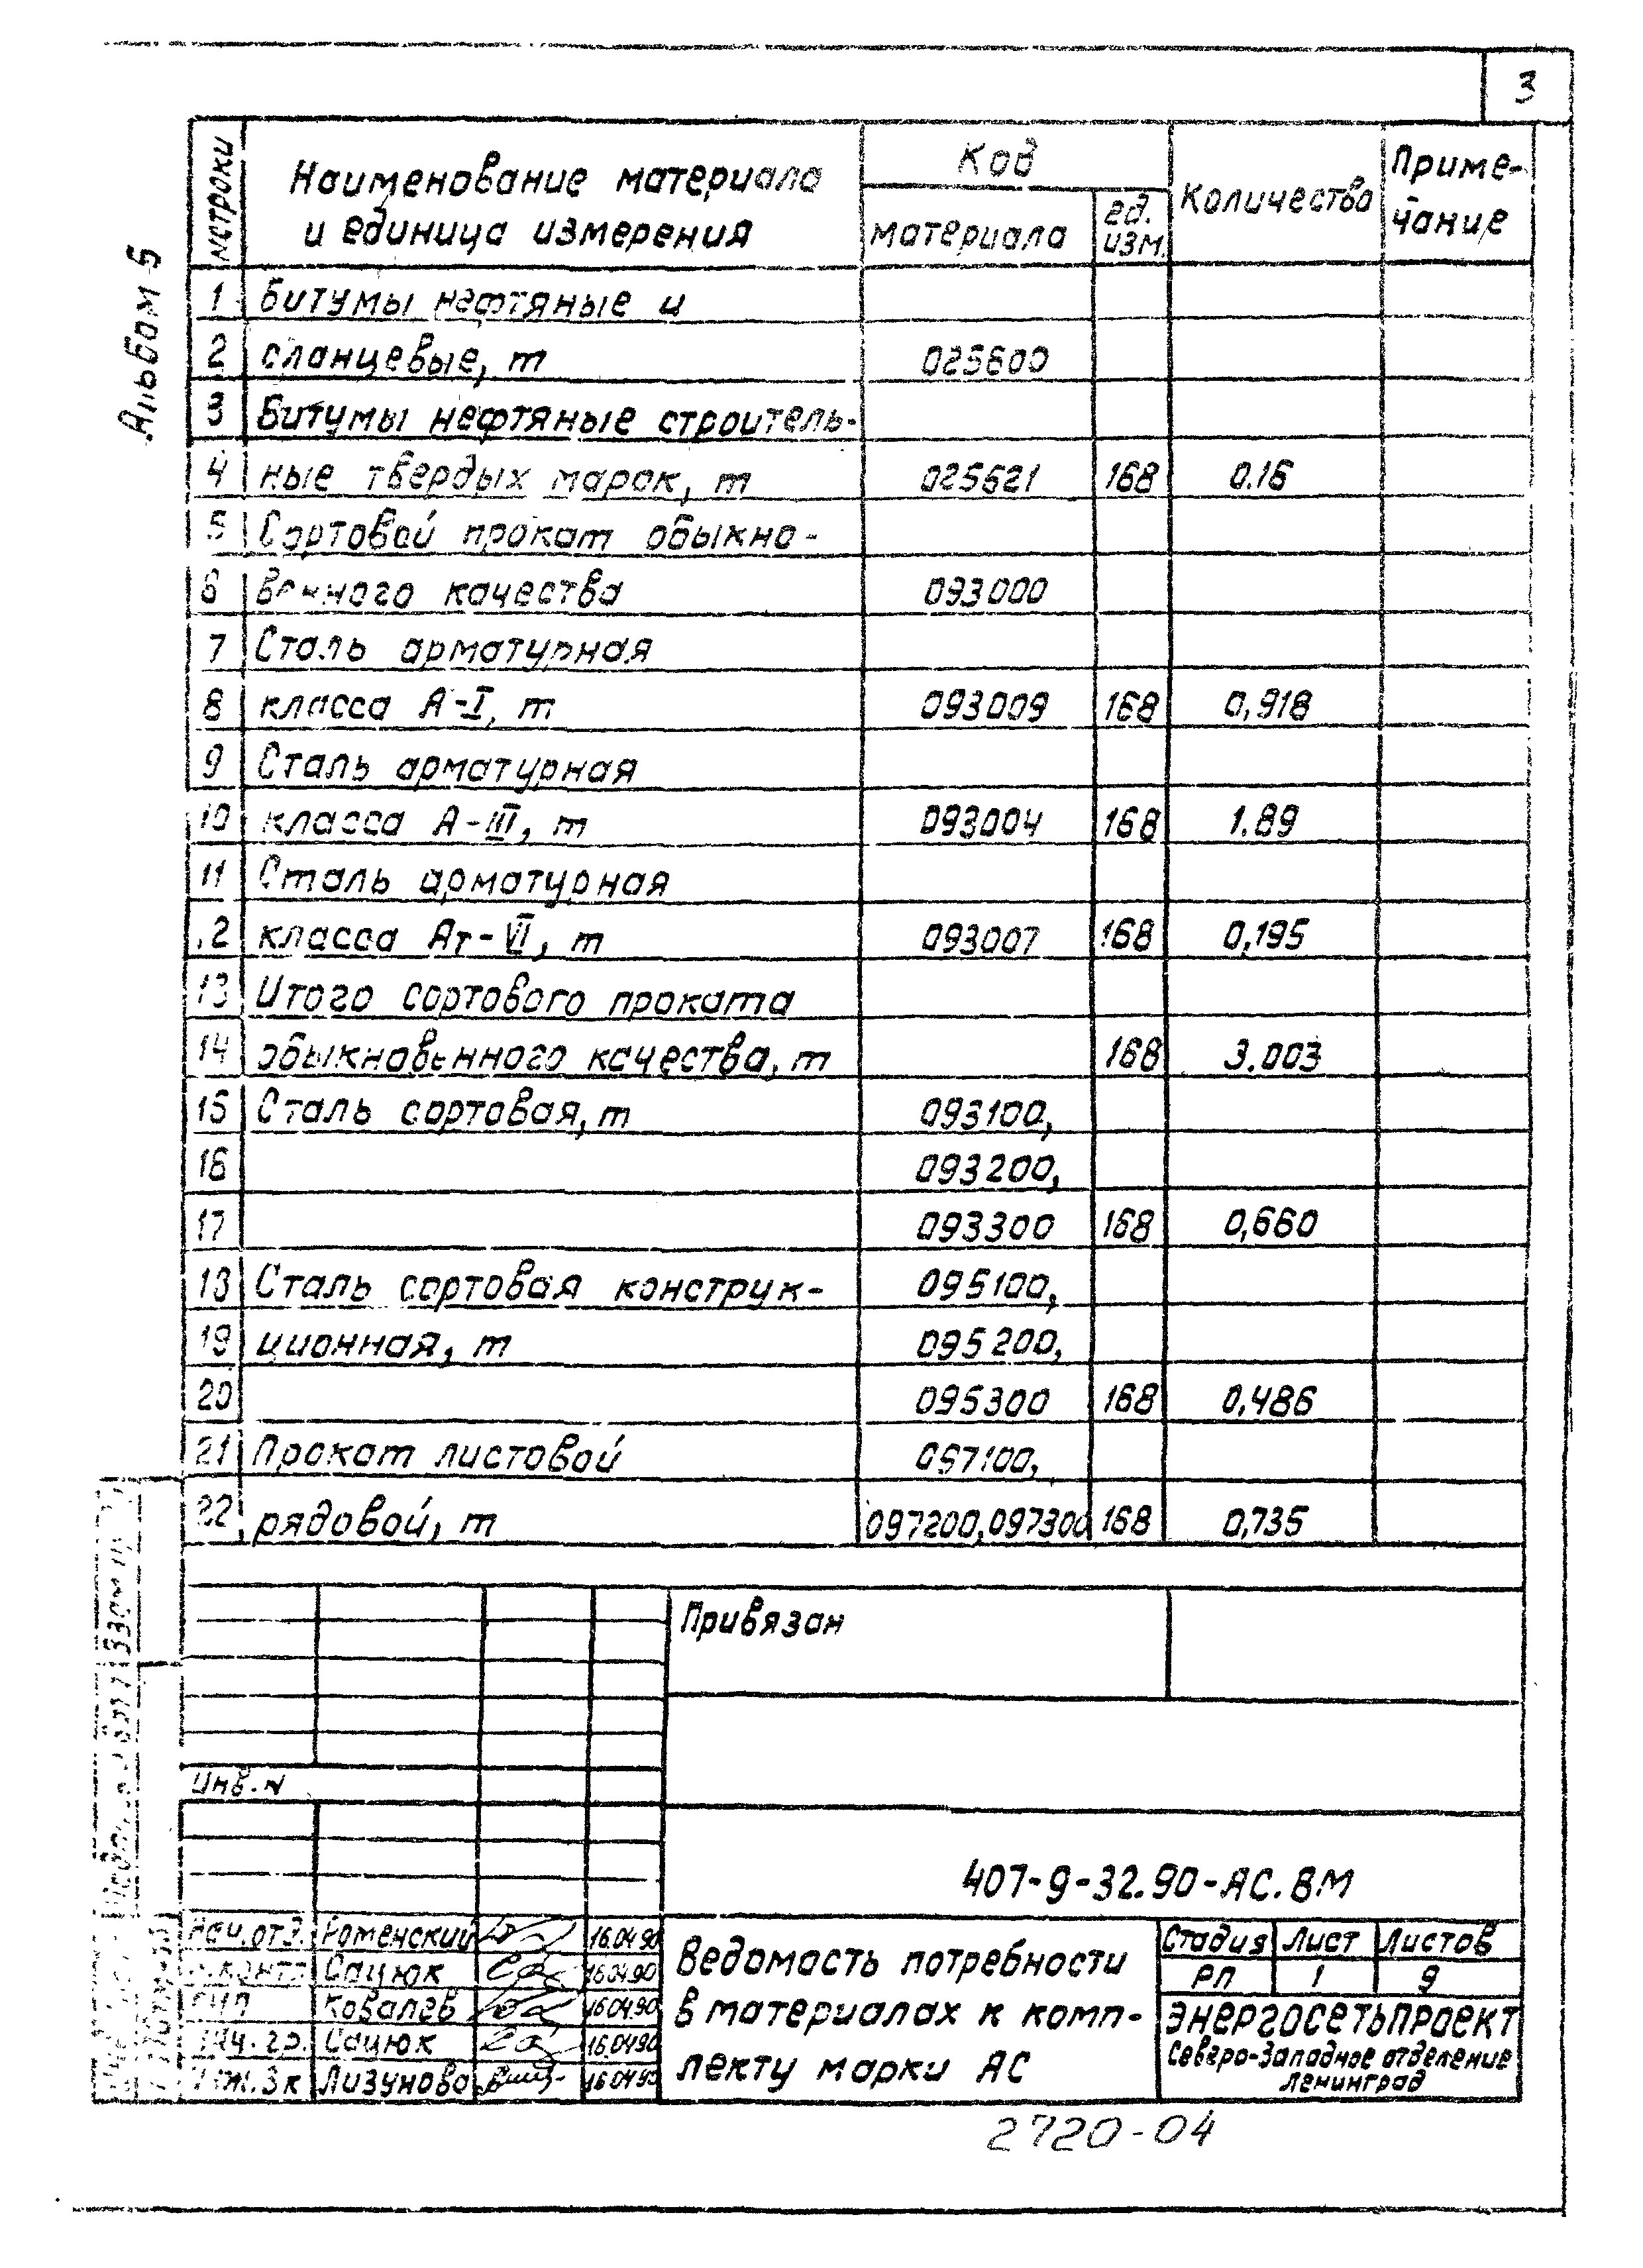 3
Альбом 5
№строки
Наименование материала
и единица измерения
Код
материала
ед.
изм.
Количество
Приме-
чание
1 Битумы нефтяные и
2 сланцевые, т 025600
3 Битумы нефтяные строитель-
4 ные твердых марок, т 025621 168 0.16
5 Сортовой прокат обыкно-
6 венного качества 093000
7 Сталь арматурная
8 класса А-I, т 093009 168 0,918
9 Сталь арматурная
10 класса А-III, т 093004 168 1.89
11 Сталь арматурная
12 класса Ат-VII, т 093007 168 0,195
13 Итого сортового проката
14 обыкновенного качества, т 168 3.003
15 Сталь сортовая, т 093100,
16 093200,
17 093300 168 0,660
18 Сталь сортовая конструк-
19 ционная, т 095100,
095200,
20 095300 168 0,486
21 Прокат листовой 097100,
22 рядовой, т 097200,097300 168 0,735
Привязан
Инв. N
407-9-32.90-АС.ВМ
Нач.отд. Роменский 16.04.90
Н.контр Сацюк 16.04.90
ГИП Ковалев 16.04.90
Нач.гр. Сацюк 16.04.90
Лизунова 16.04.90
Ведомость потребности
в материалах к комп-
лекту марки АС
Стадия Лист Листов
РП 1 9
ЭНЕРГОСЕТЬПРОЕКТ
Северо-Западное отделение
Ленинград
2720-04